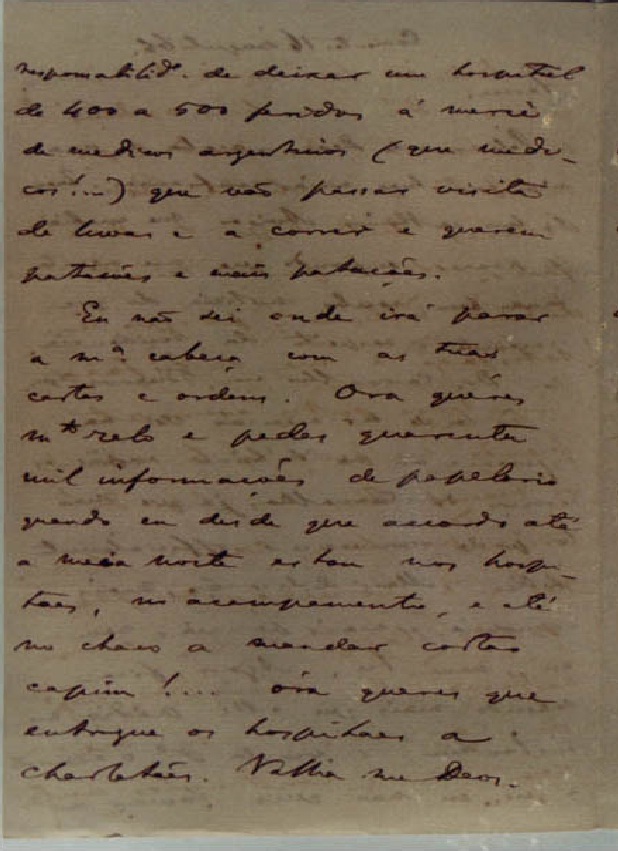 responsabilid.e de deixar um hospital
de 400 a 500 feridos á mercê
de medicos argentinos (que medi-
cos!...) que vão passar visita
de luvas e a correr e querem
patacões e mais patacões.
Eu não sei onde irá parar
a m.a cabeça com as tuas
cartas e ordens. Ora queres
m.to zelo e pedes quarenta
mil informações de papelorio
quando eu desde que accordo até
a meia noite estou nos hospi-
taes, no acampamento, e até
no chaco a mandar cortar
capim!... óra queres que
entregue os hospitaes a
charlatães. Valha me Deos.